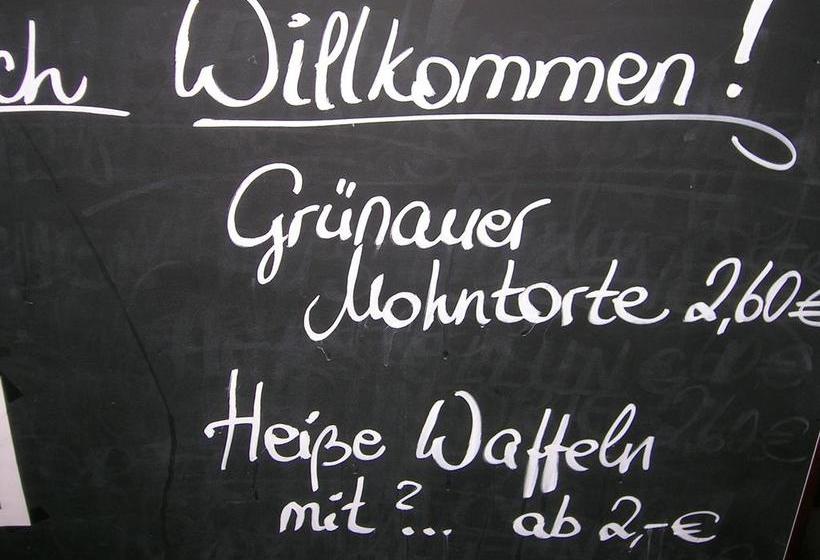 ch Willkommen!
Grünauer
Mohntorte 2,60€
Heiße Waffeln
mit ?... ab 2,-€